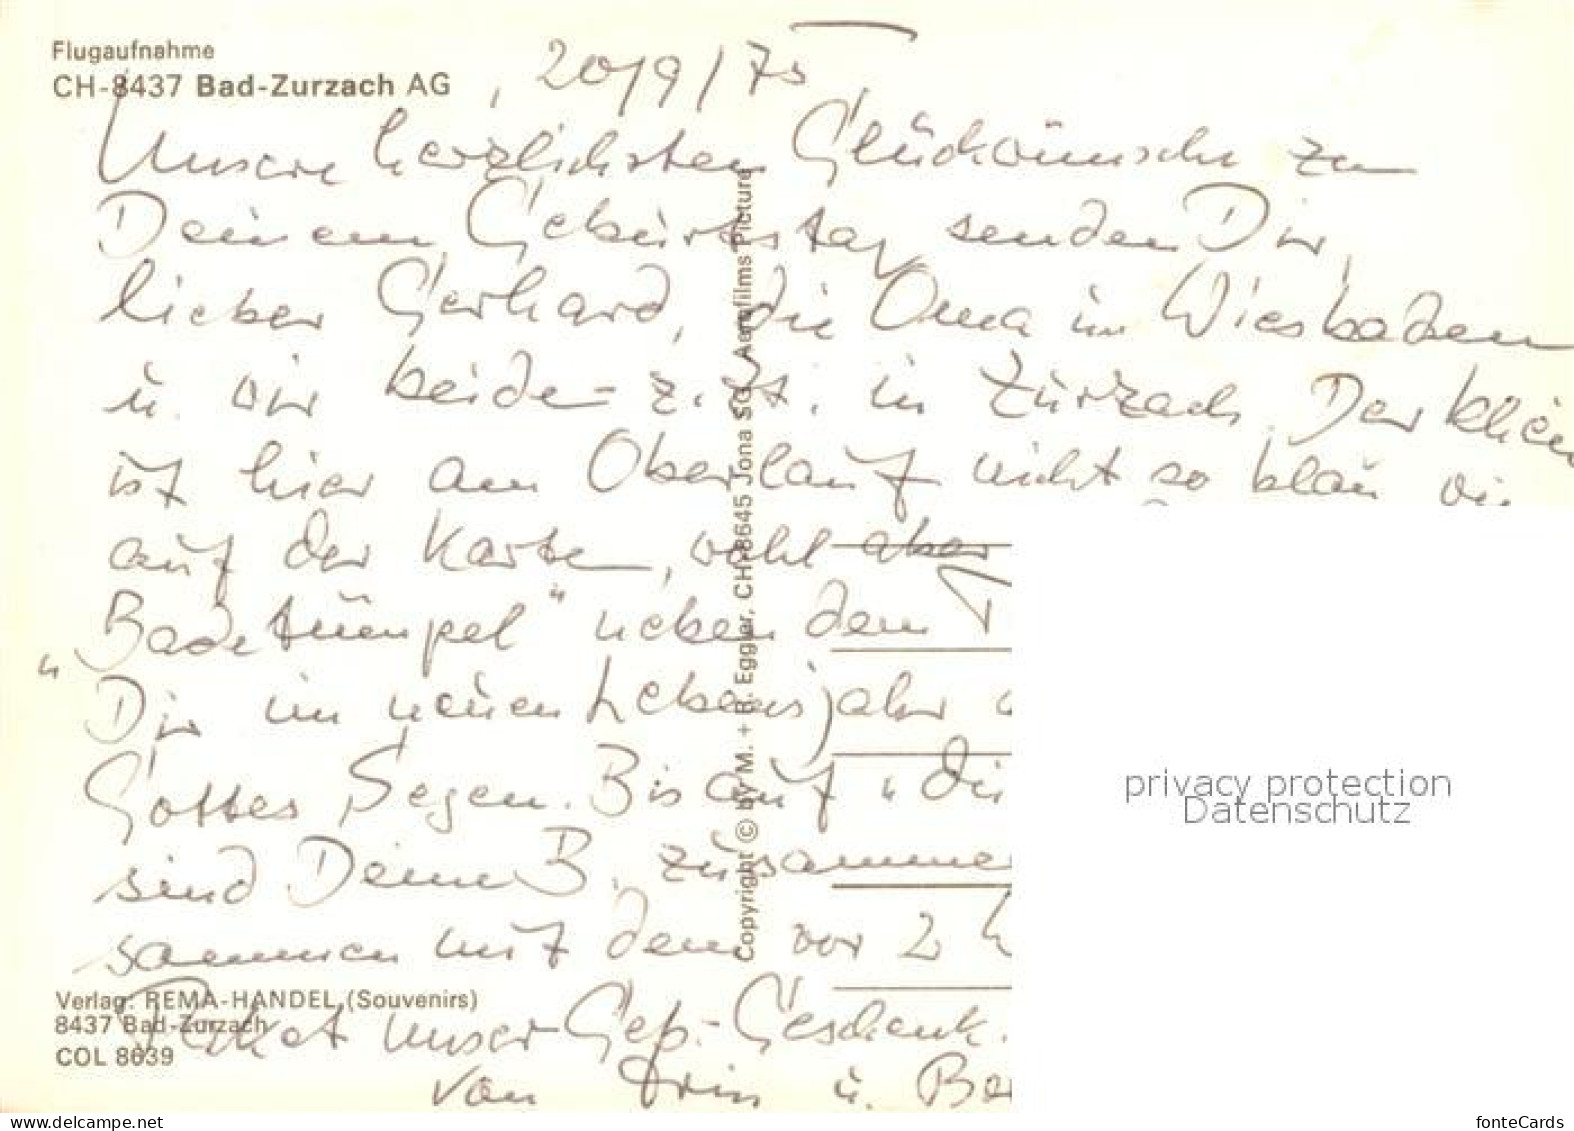 Flugaufnahme
CH-8437 Bad-Zurzach AG, 20/9/75
Unsere herzlichsten Glückwünsche zu
Deinem Geburtstag senden Dir,
lieber Gerhard, die Oma in Wiesbaden
u. wir beide - z. Zt. in Zurzach. Der
ist hier am Oberlauf nicht so blau wie
auf der Karte, wohl aber
"Badetümpel" neben dem
Dir im neuen Lebensjahr
Gottes Segen. Bis auf "die
sind Deine B. zusammen
sammen mit dem vor 2
Paket unser Geb.-Geschenk.
von u.
Copyright © by M. + B. Egger, CH-8645 Jona SG, Aerofilms Picture
Verlag: REMA-HANDEL (Souvenirs)
8437 Bad-Zurzach
COL 8639
privacy protection
Datenschutz
www.delcampe.net
fonteCards